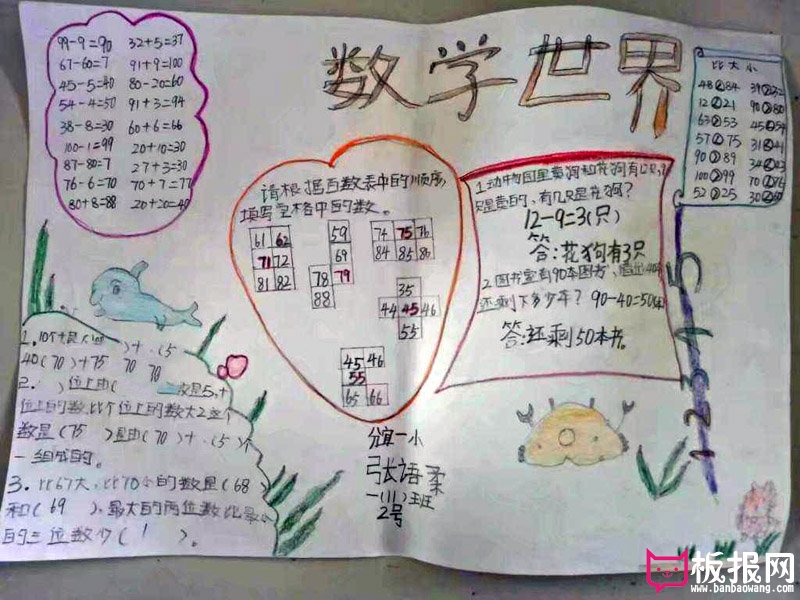 数学世界
99-9=90 32+5=37
67-60=7 91+9=100
45-5=40 80-20=60
54-4=50 91+3=94
38-8=30 60+6=66
100-1=99 20+10=30
87-80=7 27+3=30
76-6=70 70+7=77
80+8=88 20+20=40
请根据百数表中的顺序,
填写空格中的数。
61 62
71 72
81 82
59
69
78 79
88
74 75 76
84 85 86
35
44 45 46
55
45 46
55
65 66
1.动物园里黄狗和花狗有12只,
只是黄的,有几只是花狗?
12-9=3(只)
答:花狗有3只
2.图书室有90本图书,借出40
还剩下多少本? 90-40=50
答:还剩50本书。
比大小
48 84 39
12 21 90
63 53 45
57 75 31 41
90 89 34
100 99 70
52 25 30
1.10个十是(100)+(5
40(70)+75 70 70
2. )位上的 是5,十
位上的数比个位上的数大2,这个
数是(75)是由(70)+(5)个
一组成的。
3.比67大,比70小的数是(68
和(69 ),最大的两位数比最小
的三位数少(1)。
分宜一小
张语柔
一(11)班
2号
板报网
www.banbaowang.com